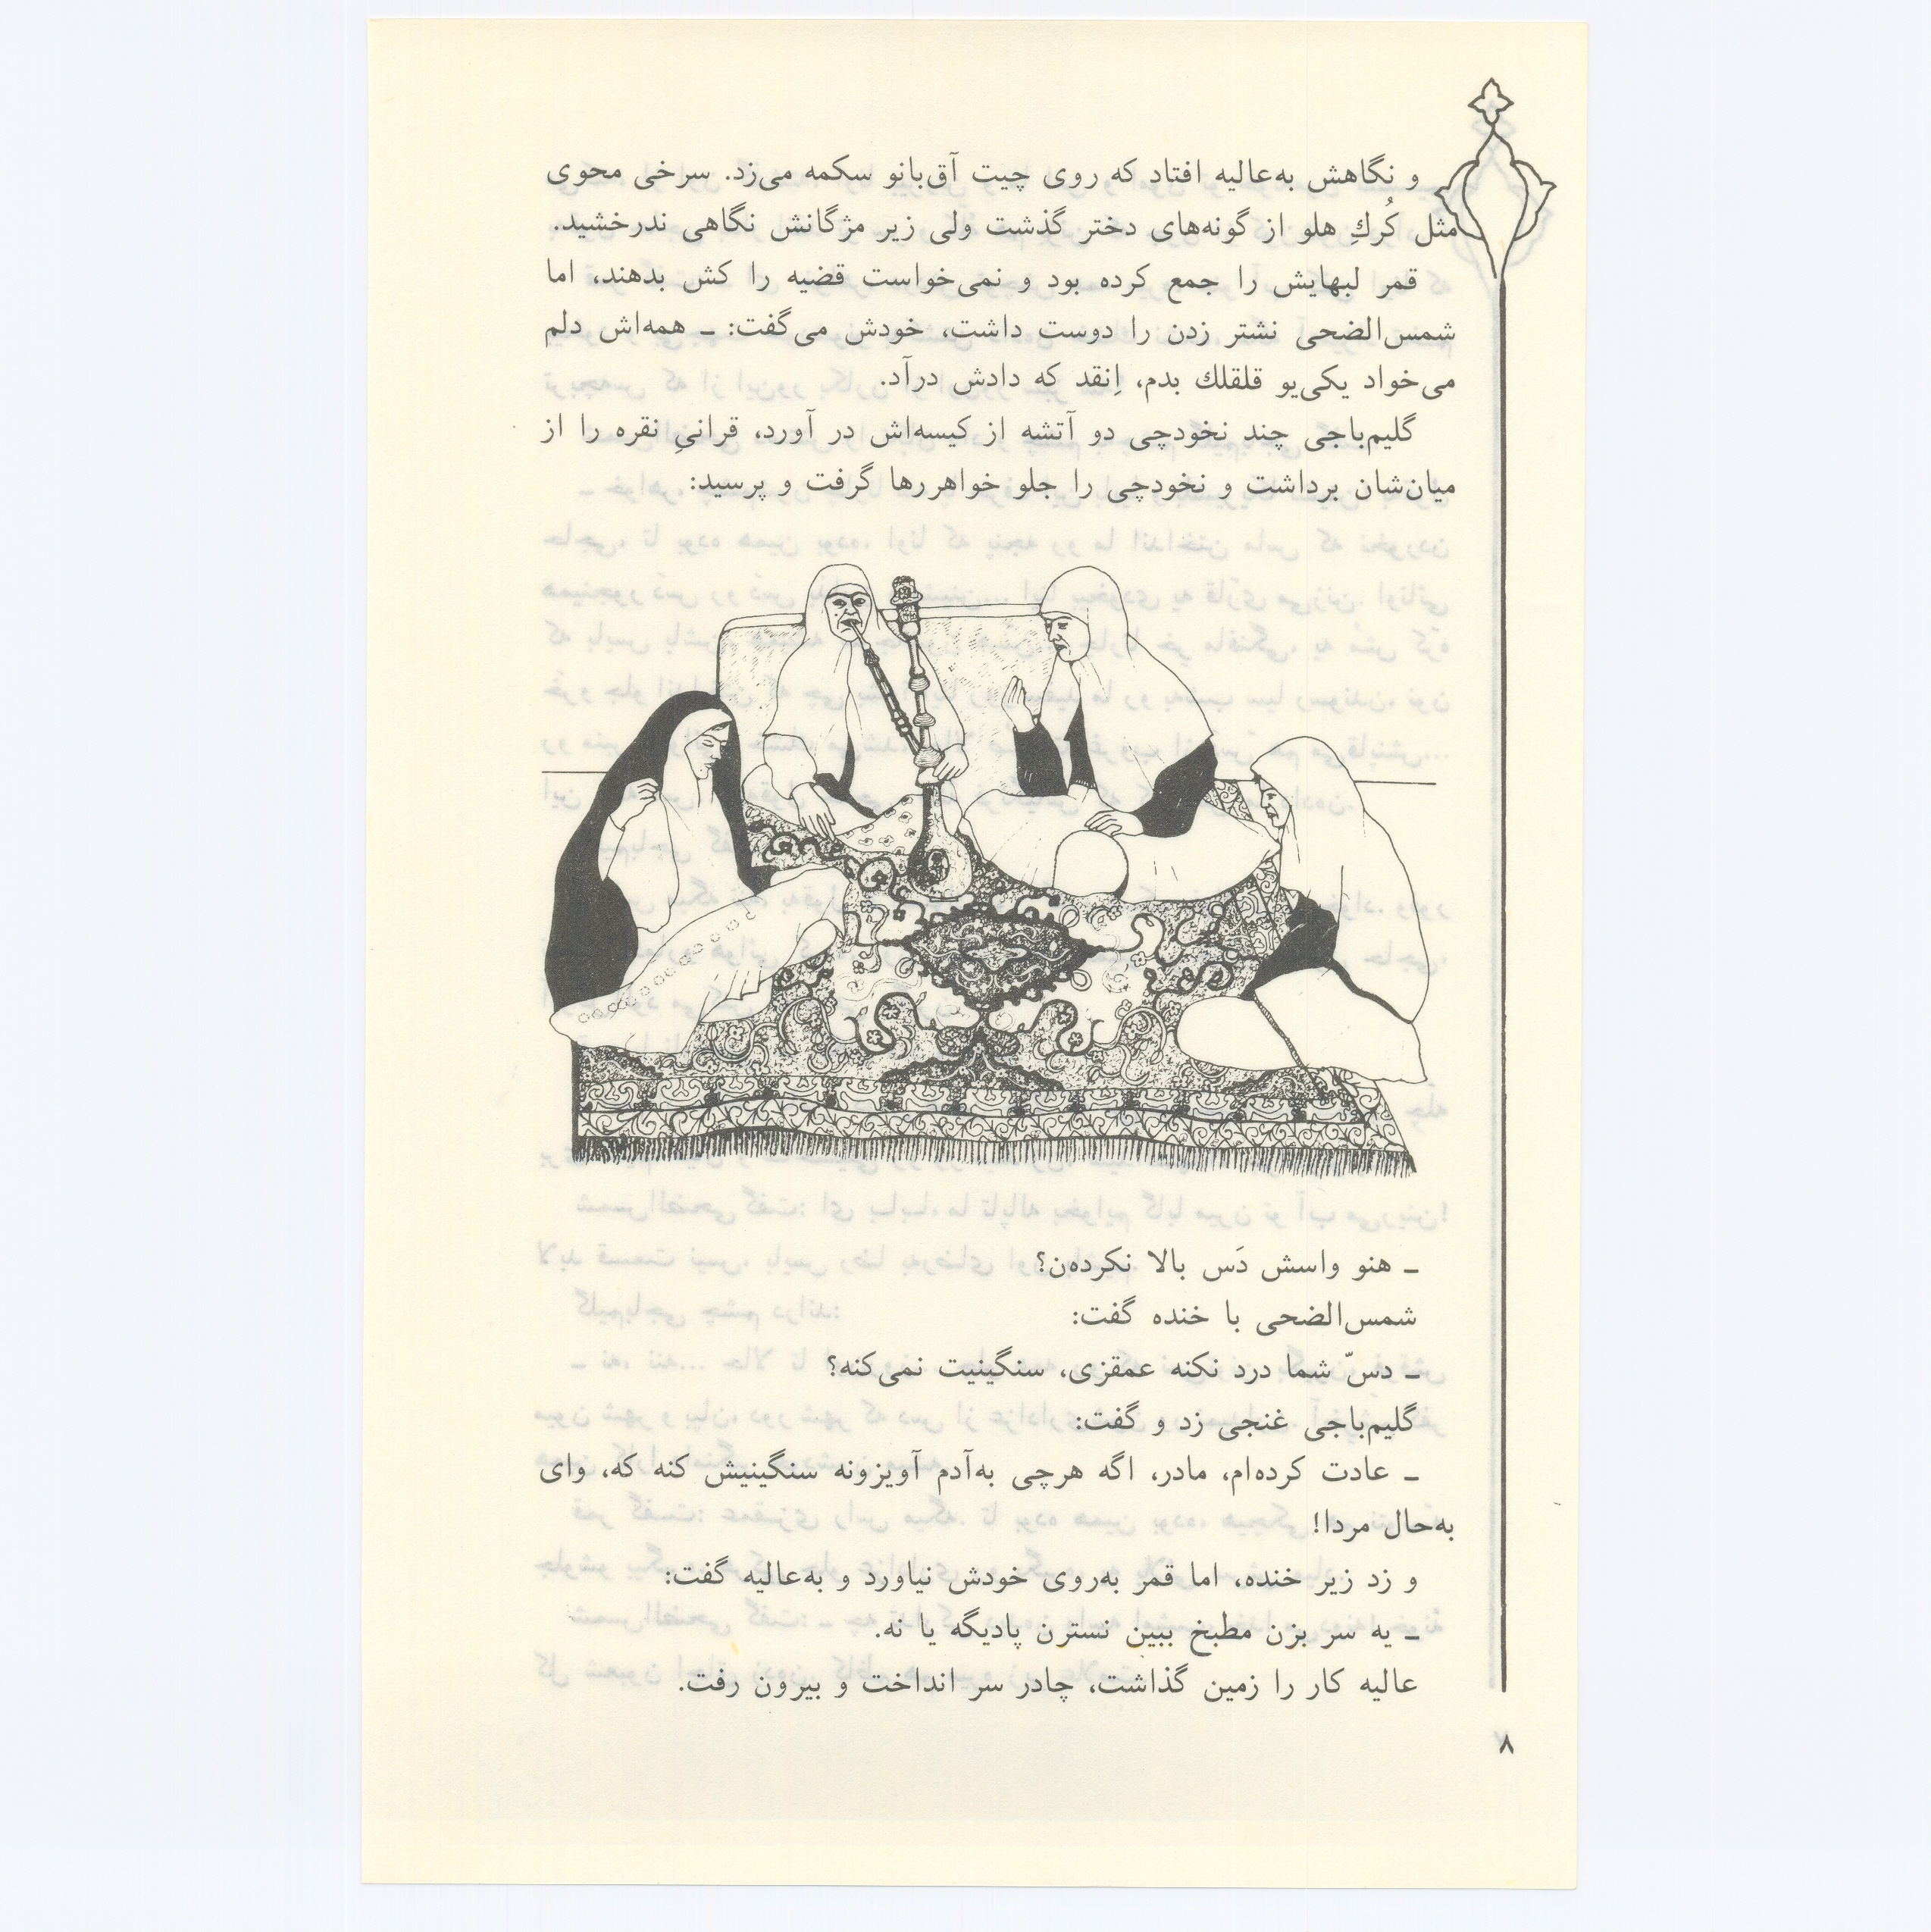 و نگاهش به‌عالیه افتاد که روی چیت آق‌بانو سکمه می‌زد. سرخی محوی
مثل کُركِ هلو از گونه‌های دختر گذشت ولی زیر مژگانش نگاهی ندرخشید.
قمر لبهایش را جمع کرده بود و نمی‌خواست قضیه را کش بدهند، اما
شمس‌الضحی نشتر زدن را دوست داشت، خودش می‌گفت: ـ همه‌اش دلم
می‌خواد یکی‌یو قلقلك بدم، اِنقد که دادش درآد.
گلیم‌باجی چند نخودچی دو آتشه از کیسه‌اش در آورد، قرانیِ نقره را از
میان‌شان برداشت و نخودچی را جلو خواهررها گرفت و پرسید:
ـ هنو واسش دَس بالا نکرده‌ن؟
شمس‌الضحی با خنده گفت:
ـ دسّ شما درد نکنه عمقزی، سنگینیت نمی‌کنه؟
گلیم‌باجی غنجی زد و گفت:
ـ عادت کرده‌ام، مادر، اگه هرچی به‌آدم آویزونه سنگینیش کنه که، وای
به‌حال مردا!
و زد زیر خنده، اما قمر به‌روی خودش نیاورد و به‌عالیه گفت:
ـ یه سر بزن مطبخ ببین نسترن پادیگه یا نه.
عالیه کار را زمین گذاشت، چادر سر انداخت و بیرون رفت.
۸